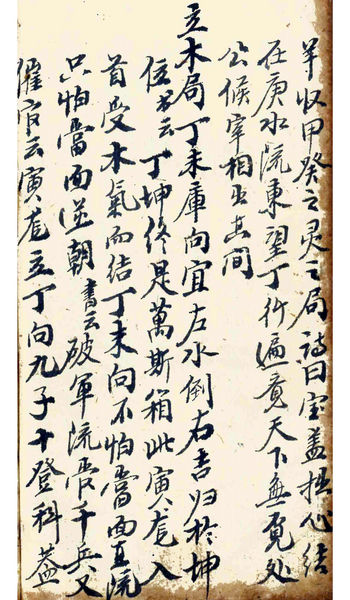 羊收甲癸之灵之局詩曰宝盖捂心结
在庚水流東望丁行遍竟天下無覓処
公候宰相出其间
立木局丁未庫向宜左水倒右吉归於坤
位書云丁坤终是萬斯箱此寅龙入
首受木氣而结丁未向不怕當面直流
只怕當面逆朝書云破軍流當千兵又
催官云寅龙立丁向九子十登科葢